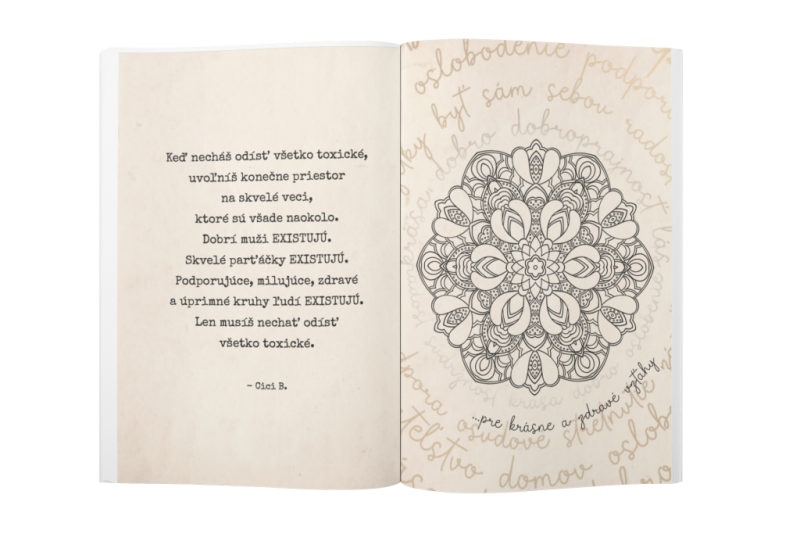 Keď necháš odísť všetko toxické,
uvoľníš konečne priestor
na skvelé veci,
ktoré sú všade naokolo.
Dobrí muži EXISTUJÚ.
Skvelé parťáčky EXISTUJÚ.
Podporujúce, milujúce, zdravé
a úprimné kruhy ľudí EXISTUJÚ.
Len musíš nechať odísť
všetko toxické.
– Cici B.
oslobodenie podpora
byť sám sebou radosť
krása dobro dobroprajnosť
...pre krásne a zdravé vzťahy
krása dobro
osudové stretnutie
domov